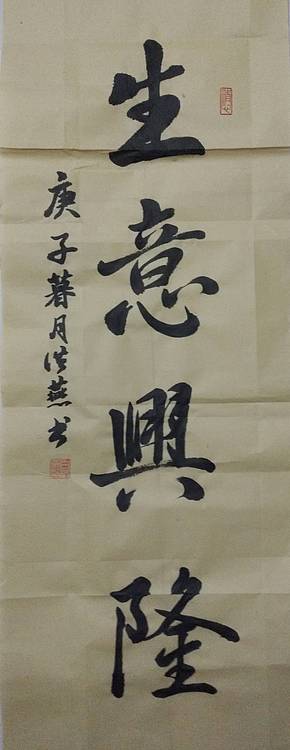 生意興隆
庚子暮月洪燕书